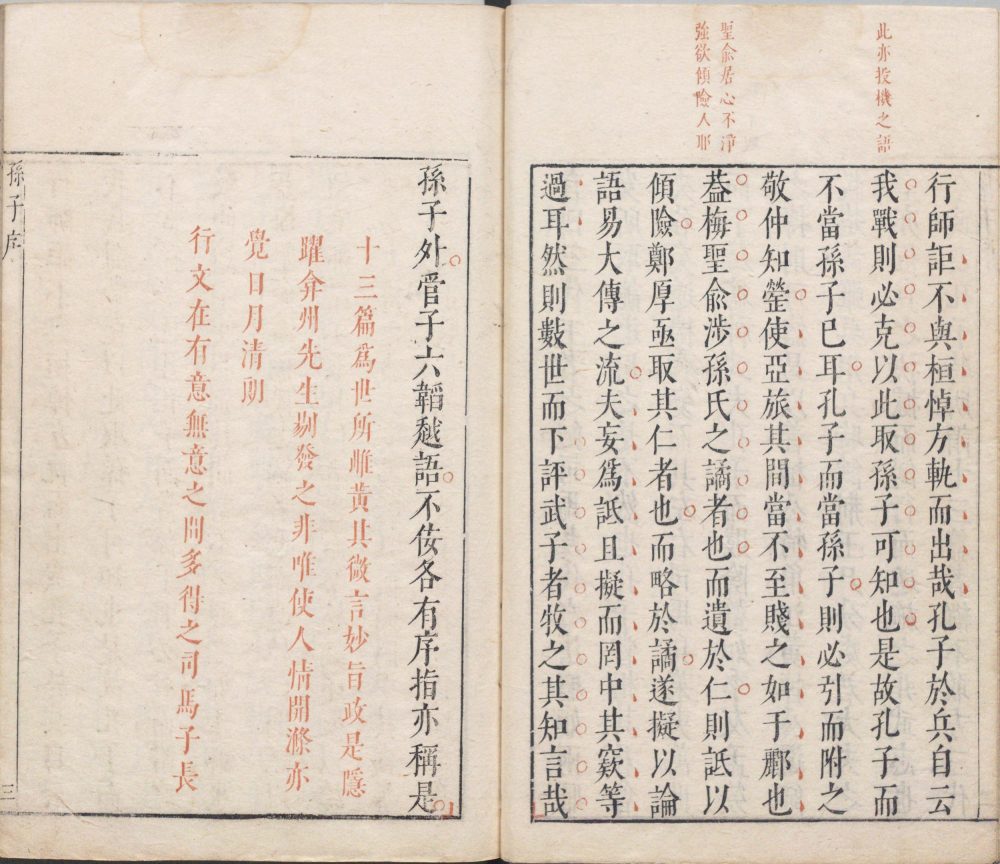 此亦投機之語
聖俞居心不淨
強欲傾險人耶
行師詎不與桓悼方軌而出哉孔子於兵自云
我戰則必克以此取孫子可知也是故孔子而
不當孫子已耳孔子而當孫子則必引而附之
敬仲知罃使亞旅其間當不至賤之如于酈也
葢梅聖俞涉孫氏之譎者也而遺於仁則詆以
傾險鄭厚亟取其仁者也而略於譎遂擬以論
語易大傳之流夫妄爲詆且擬而罔中其窾等
過耳然則數世而下評武子者牧之其知言哉
孫子外管子六韜越語不佞各有序指亦稱是
十三篇爲世所雌黃其微言妙旨政是隱
躍弇州先生剔發之非唯使人情開滌亦
覺日月清朗
行文在有意無意之間多得之司馬子長
孫子序
三